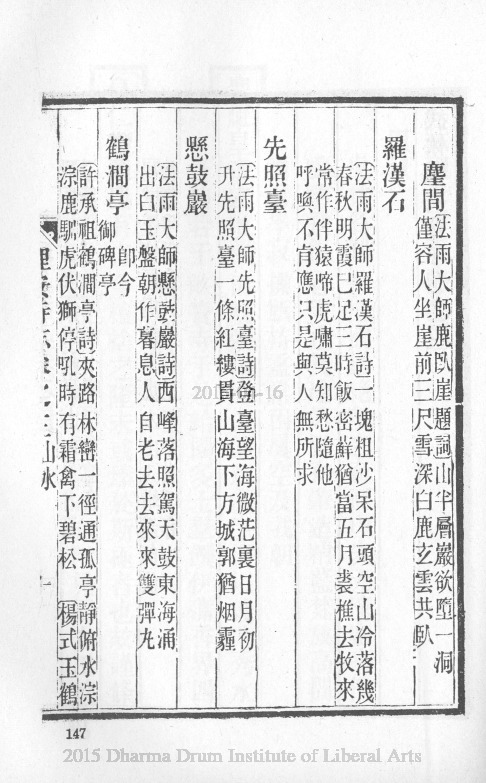 麈間
法雨大師鹿臥崖題詞山半層巖欲墮一洞
僅容人坐崖前三尺雪深白鹿玄雲共臥
羅漢石
法雨大師羅漢石詩一塊粗沙呆石頭空山冷落幾
春秋明霞已足三時飯密蘚猶當五月裘樵去牧來
常作伴猿啼虎嘯莫知愁隨他
呼喚不肯應只是與人無所求
先照臺
法雨大師先照臺詩登臺望海微茫裏日月初
升先照臺一條紅縷貫山海下方城郭猶烟霾
懸鼓巖
法雨大師懸鼓巖詩西峰落照駕天鼓東海涌
出白玉盤朝作暮息人自老去去來來雙彈丸
鶴澗亭
即今
御碑亭
許承祖鶴澗亭詩夾路林巒一徑通孤亭靜俯水淙
淙鹿馴虎伏獅停吼時有霜禽下碧松 楊式玉鶴
理安寺志卷之三山水
147
2015 Dharma Drum Institute of Liberal Arts